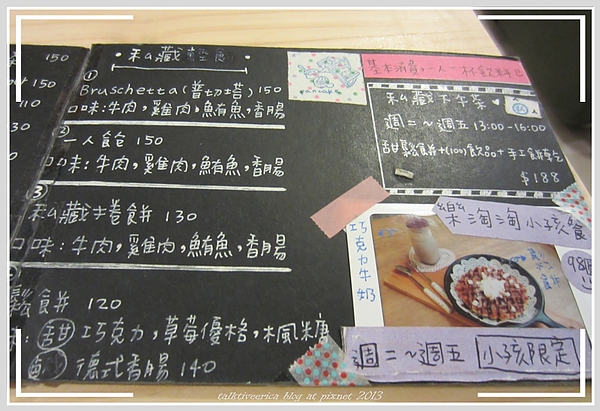 150
150
110
30
私a藏輕食
① Bruschetta(普切塔) 150
口味:牛肉,雞肉,鮪魚,香腸
② 一人飽 150
口味:牛肉,雞肉,鮪魚,香腸
③ 私a藏手卷餅 130
口味:牛肉,雞肉,鮪魚,香腸
鬆餅 120
味:甜 巧克力,草莓優格,楓糖
鹹 德式香腸 140
pancake
基本消費,一人一杯飲料
私a藏下午茶
週二~週五 13:00-16:00
甜鬆餅+(100)飲品+手工餅乾
$188
樂淘淘小孩餐
巧克力牛奶
鬆餅
98
週二~週五 小孩限定
talktiveerica blog at pixnet 2013